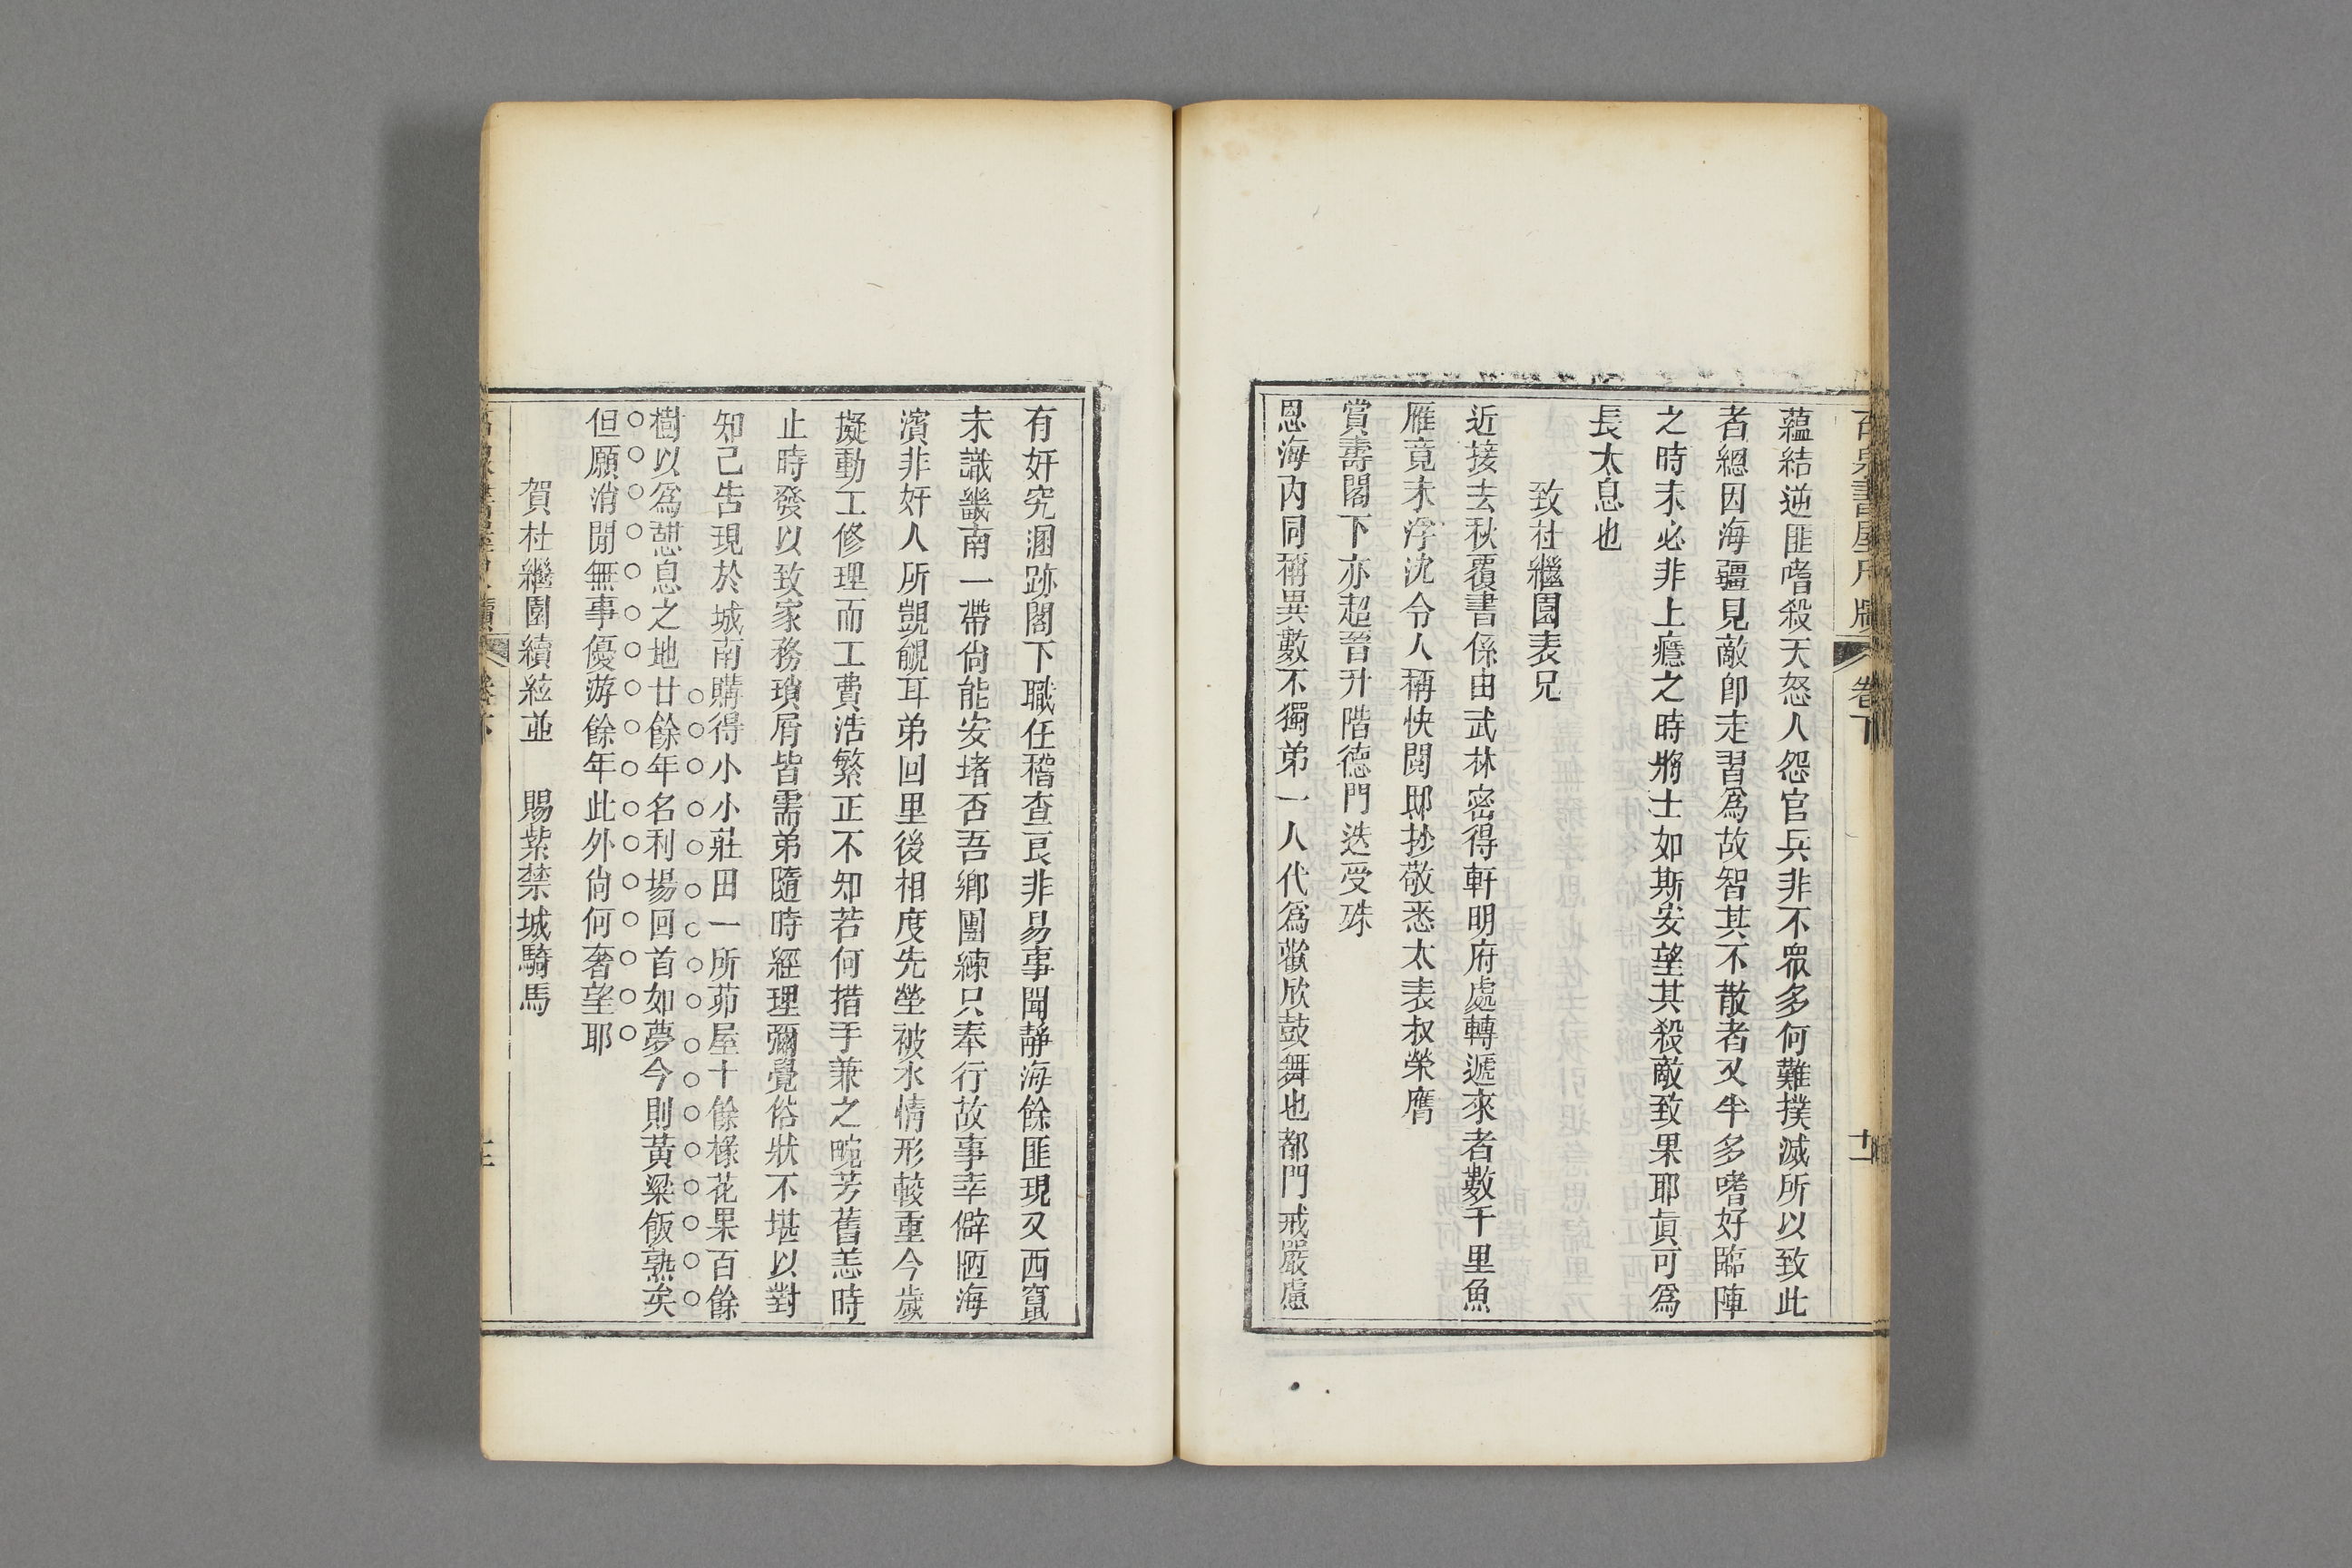 蘊結逆匪嗜殺天怒人怨官兵非不眾多何難撲滅所以致此
者總因海疆見敵卽走習爲故智其不散者又半多嗜好臨陣
之時未必非上癮之時將士如斯安望其殺敵致果耶眞可爲
長太息也
致杜繼園表兄
近接去秋覆書係由武林密得軒明府處轉遞來者數千里魚
雁竟未浮沈令人稱快閱邸抄敬悉太表叔榮膺
賞壽閣下亦超晉升階德門迭受殊
恩海內同稱異數不獨弟一人代爲歡欣鼓舞也都門戒嚴慮
有奸宄溷跡閣下職任稽查良非易事聞靜海餘匪現又西竄
未識畿南一帶尙能安堵否吾鄉團練只奉行故事幸僻陋海
濱非奸人所覬覦耳弟回里後相度先塋被水情形較重今歲
擬動工修理而工費浩繁正不知若何措手兼之畹芳舊恙時
止時發以致家務瑣屑皆需弟隨時經理彌覺俗狀不堪以對
知己吿現於城南購得小小莊田一所茆屋十餘椽花果百餘
樹以爲憩息之地廿餘年名利場回首如夢今則黃粱飯熟矣
但願消閒無事優游餘年此外尙何奢望耶
賀杜繼園續絃並 賜紫禁城騎馬
卷下